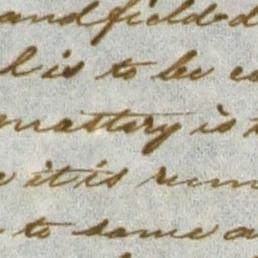 and field
is to be
mattery is
it is rum
to some a